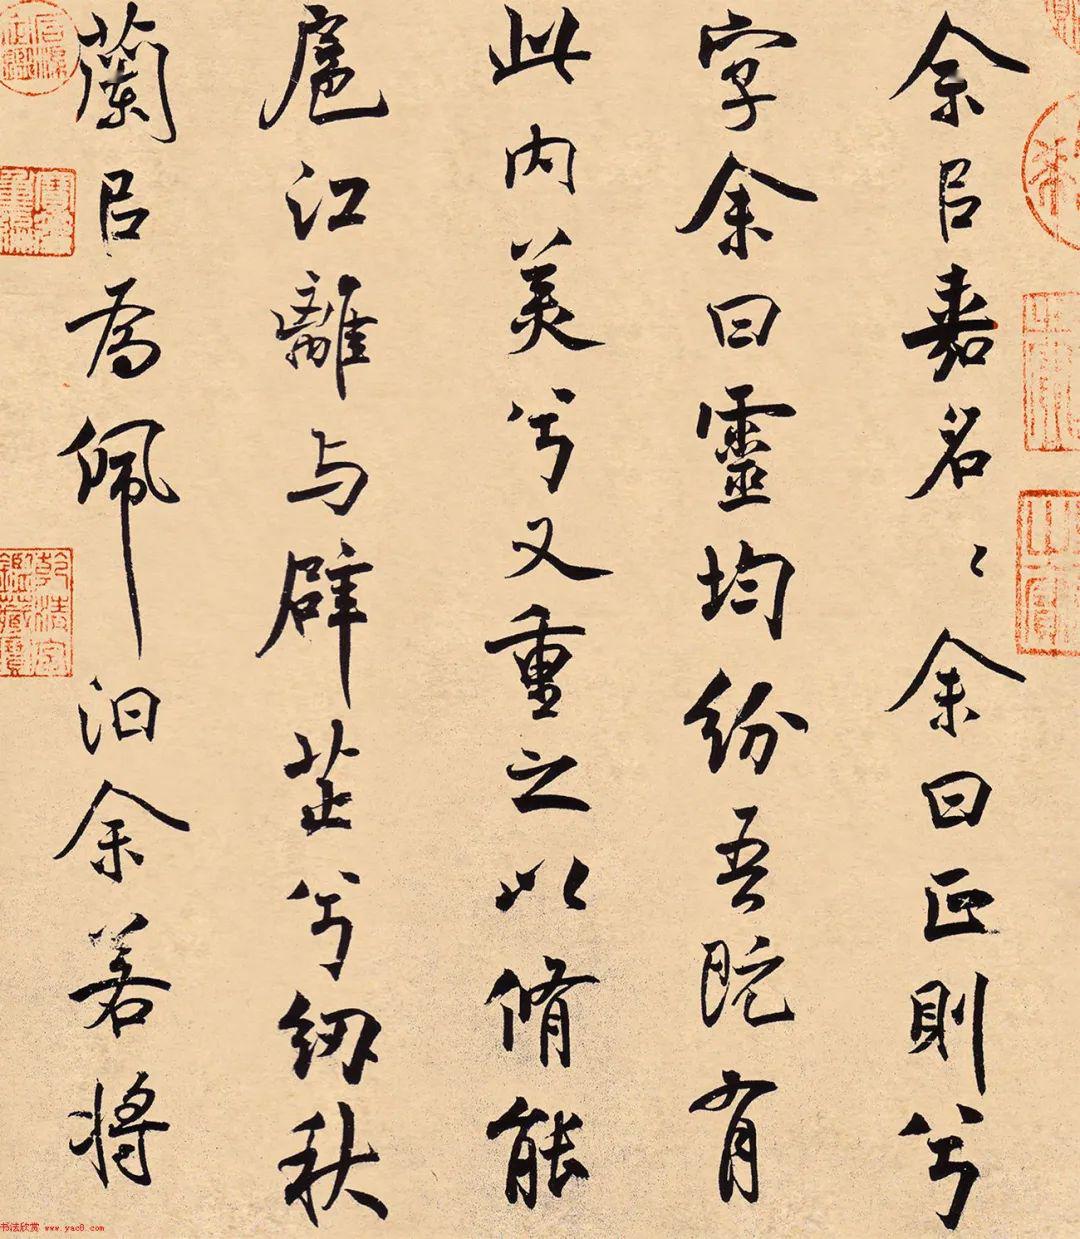 余㠯嘉名〻余曰正則兮
字余曰靈均紛吾既有
此内美兮又重之以脩能
扈江離与辟芷兮紉秋
蘭㠯為佩汩余若將
乾清宮
鑑藏寶
书法欣赏 www.yac8.com